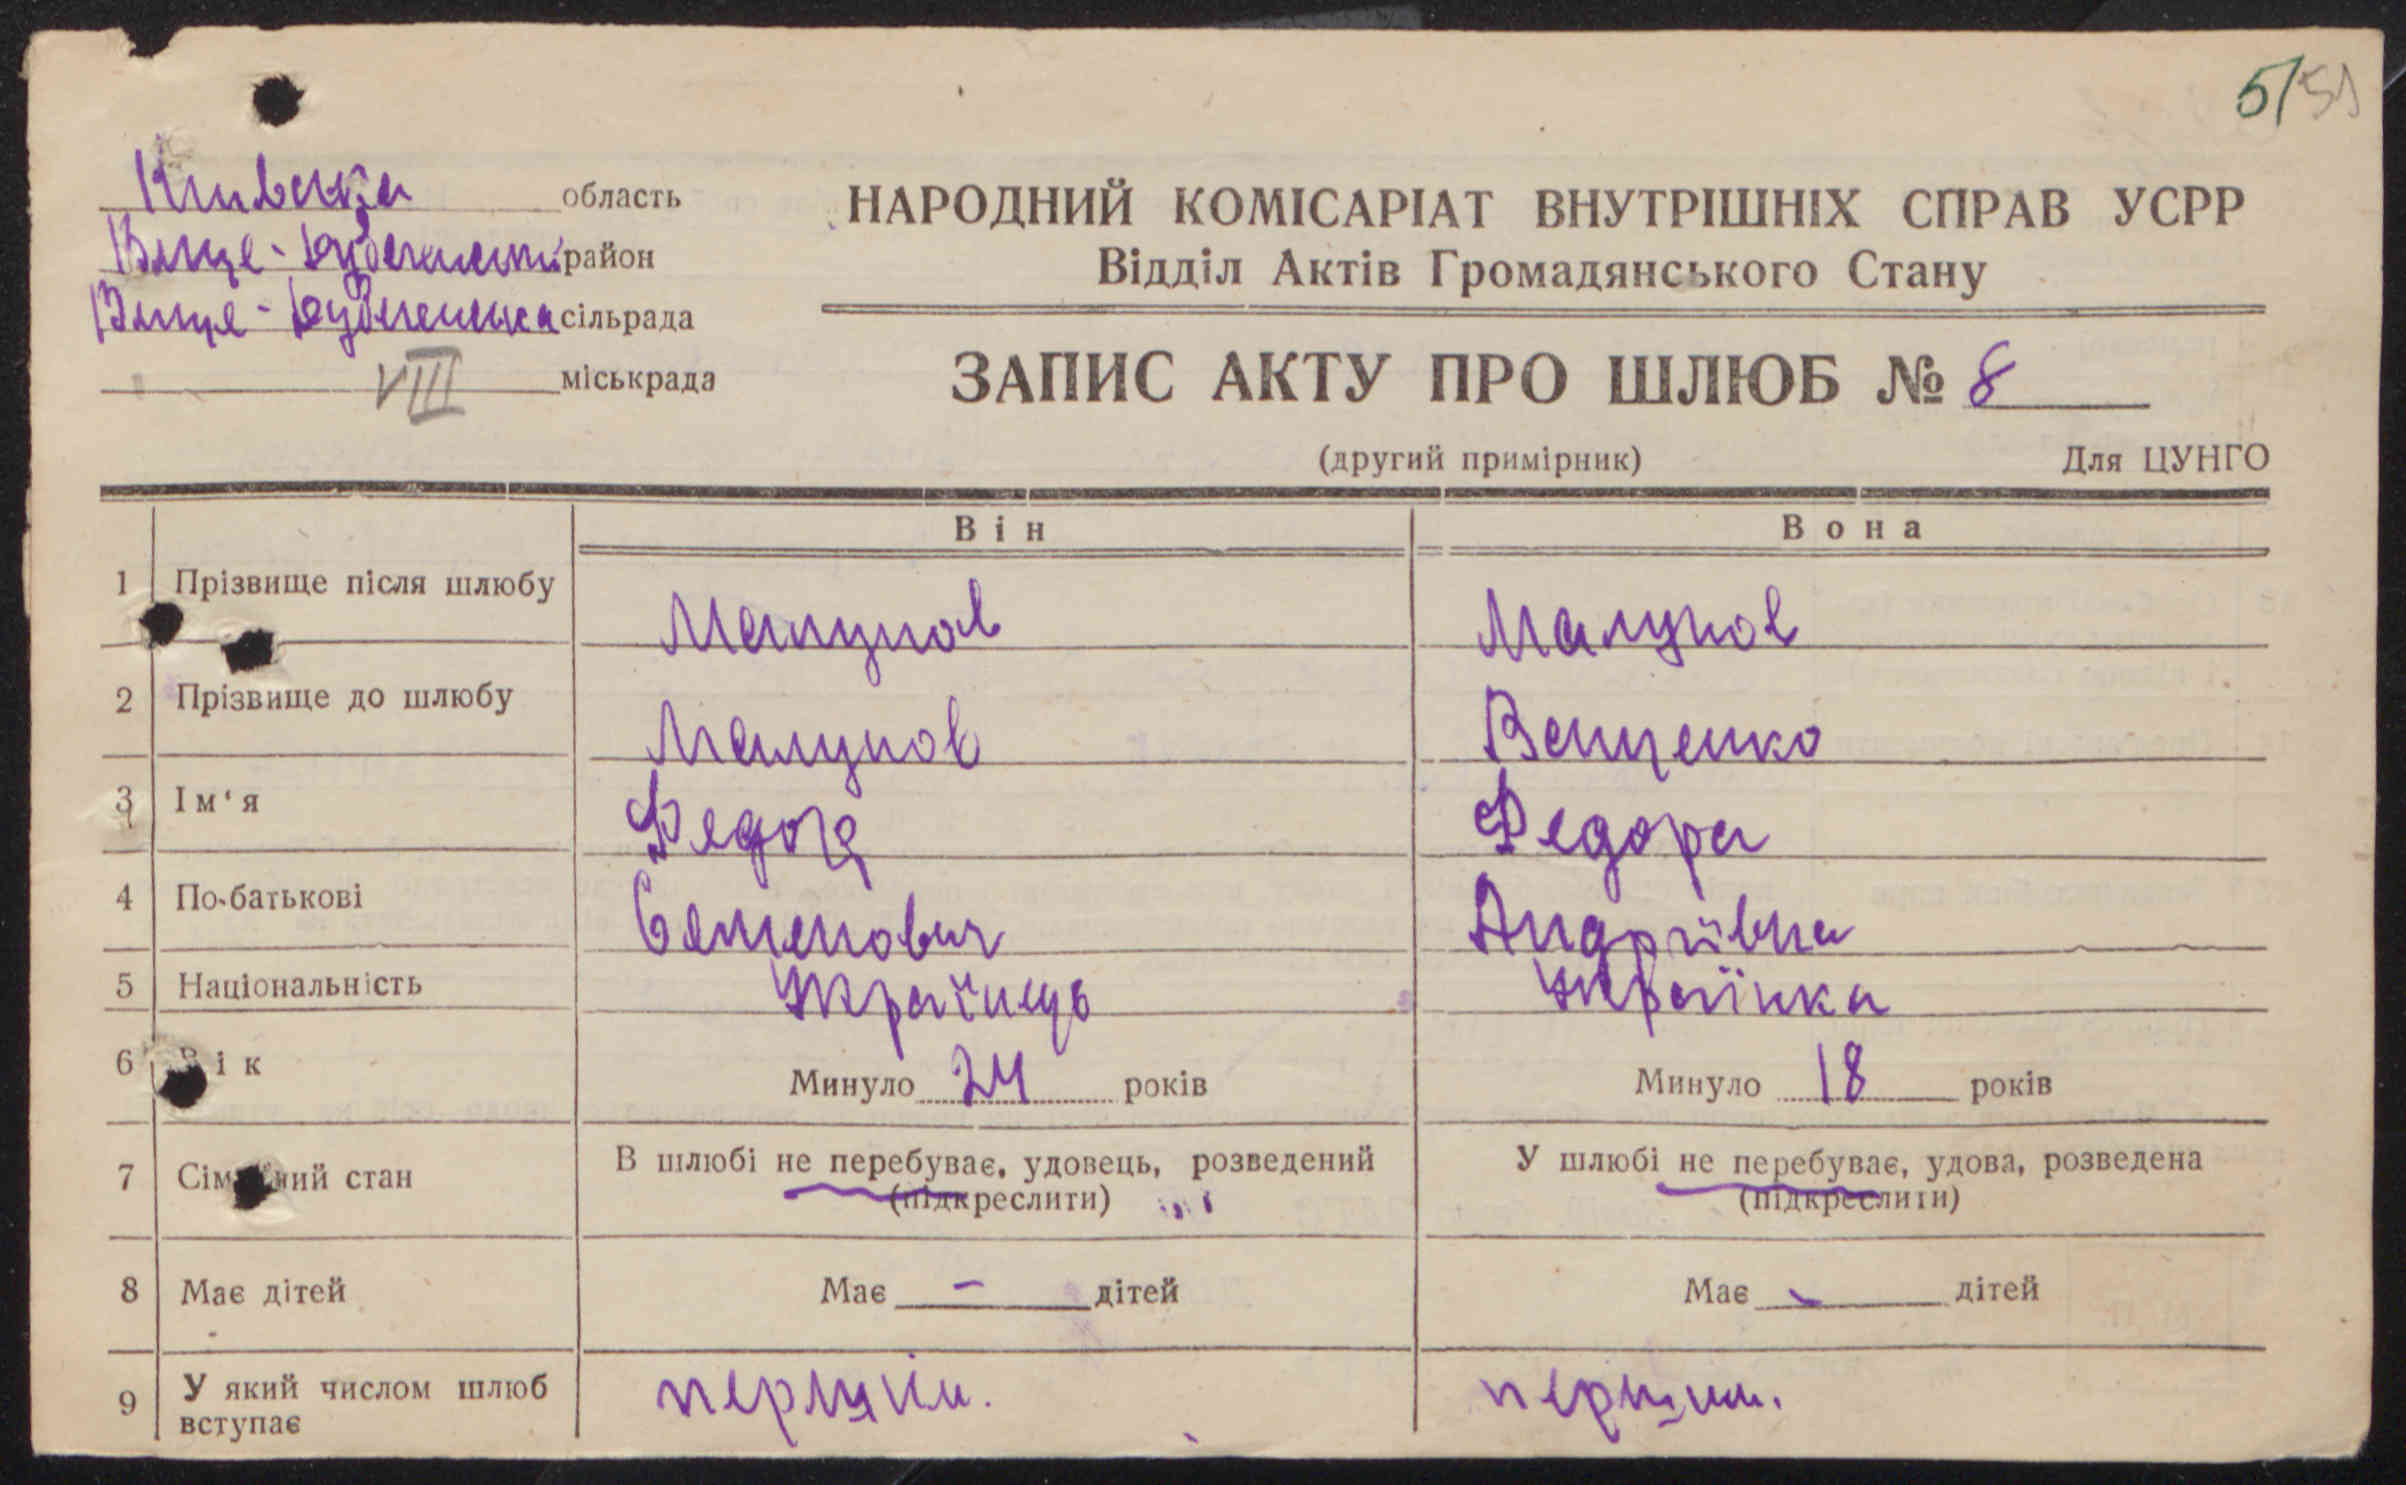 5/51
Київська область
Велико-Бу район
Велико-Бу сільрада
VIII міськрада
НАРОДНИЙ КОМІСАРІАТ ВНУТРІШНІХ СПРАВ УСРР
Відділ Актів Громадянського Стану
ЗАПИС АКТУ ПРО ШЛЮБ № 8
(другий примірник) Для ЦУНГО
Він Вона
1 Прізвище після шлюбу Малунов Малунов
2 Прізвище до шлюбу Малунов Ващенко
3 Ім‘я Федор Федора
4 По-батькові Семенович Андріївна
5 Національність Українець Українка
6 Вік Минуло 24 років Минуло 18 років
7 Сімейний стан В шлюбі не перебуває, удовець, розведений У шлюбі не перебуває, удова, розведена
(підкреслити) (підкреслити)
8 Має дітей Має - дітей Має - дітей
9 У який числом шлюб вступає першим. першим.